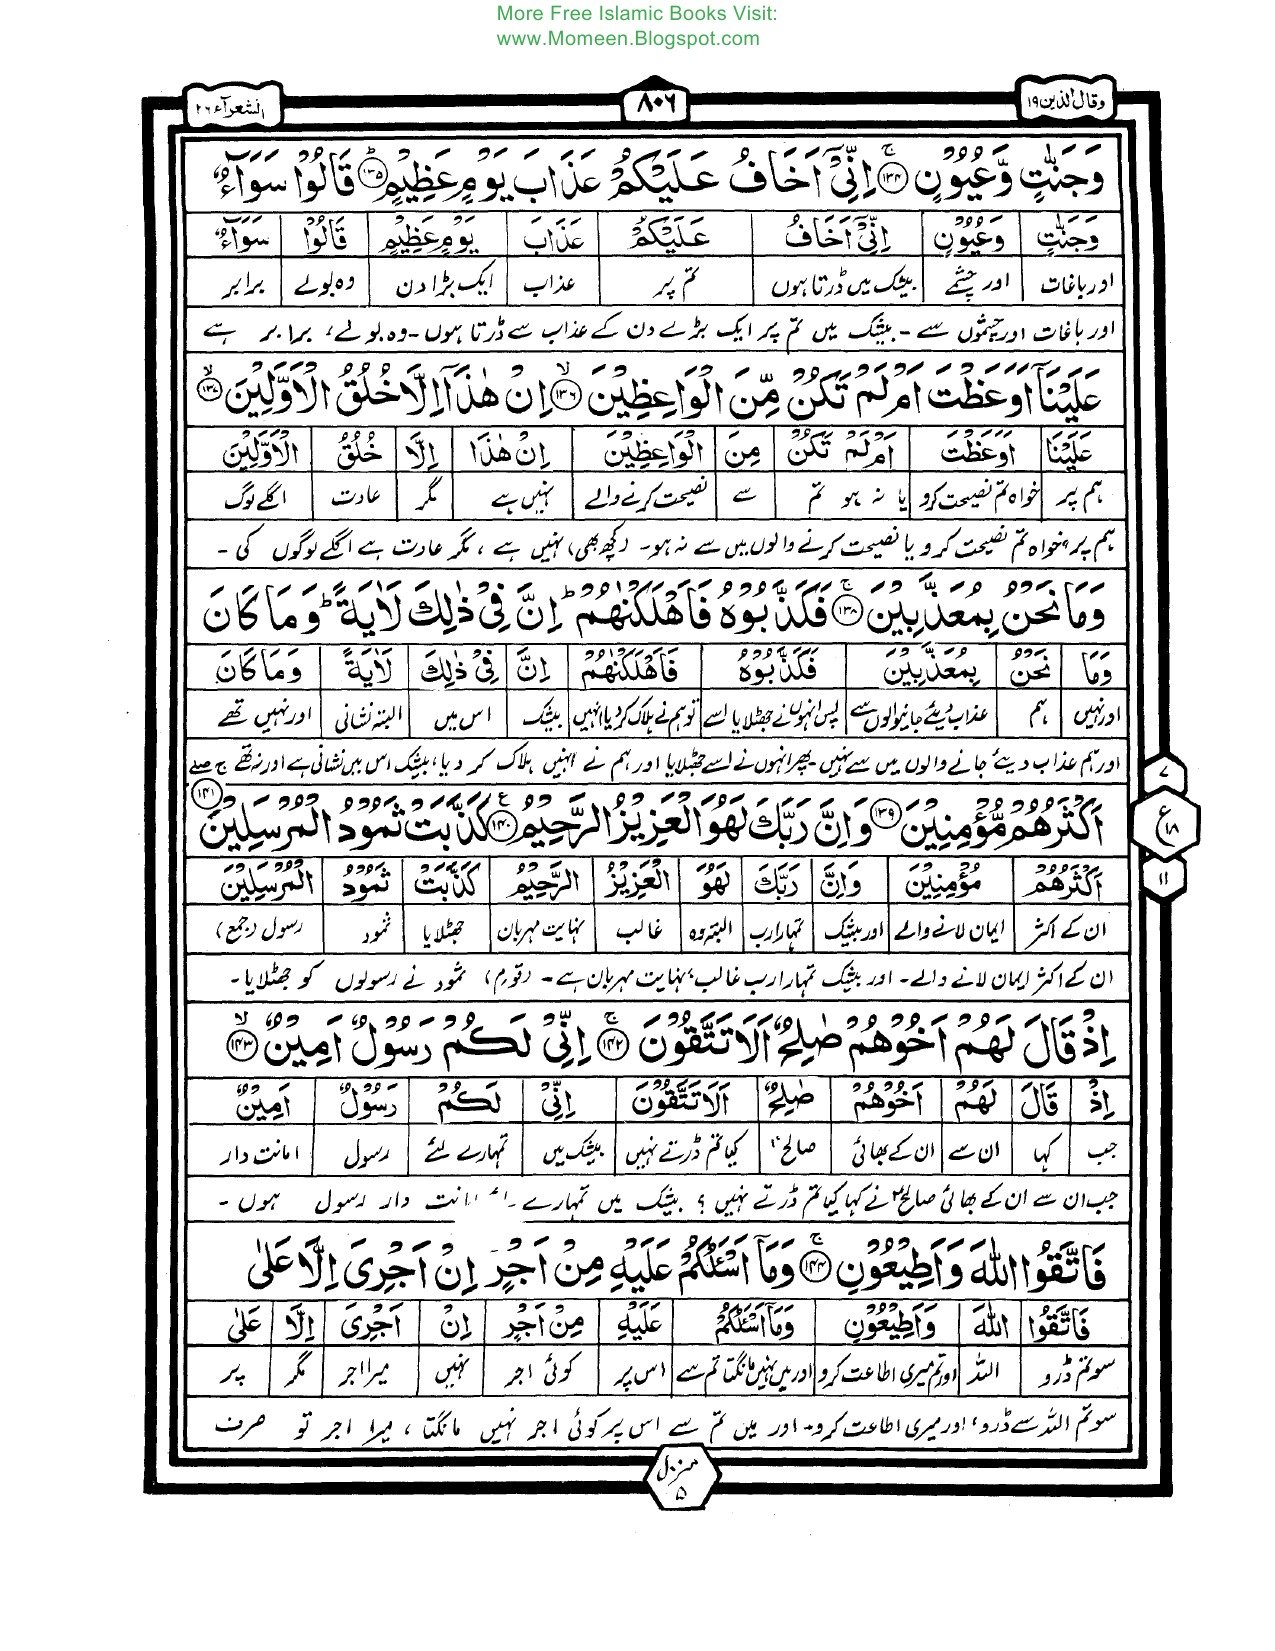 More Free Islamic Books Visit:
www.Momeen.Blogspot.com
وقال الذین ۱۹
۸۰۶
الشعرآء ۲۶
وَجَنّٰتٍ وَّعُيُوْنٍ ۚ﴿۱۳۴﴾ اِنِّيْۤ اَخَافُ عَلَيْكُمْ عَذَابَ يَوْمٍ عَظِيْمٍ ؕ﴿۱۳۵﴾ قَالُوْا سَوَآءٌ
وَجَنّٰتٍ وَّعُيُوْنٍ اِنِّيْۤ اَخَافُ عَلَيْكُمْ عَذَابَ يَوْمٍ عَظِيْمٍ قَالُوْا سَوَآءٌ
اور باغات اور چشمے بیشک میں ڈرتا ہوں تم پر عذاب ایک بڑا دن وہ بولے برابر
اور باغات اور چشموں سے - بیشک میں تم پر ایک بڑے دن کے عذاب سے ڈرتا ہوں - وہ بولے، برابر ہے
عَلَيْنَاۤ اَوَعَظْتَ اَمْ لَمْ تَكُنْ مِّنَ الْوَاعِظِيْنَ ۙ﴿۱۳۶﴾ اِنْ هٰذَاۤ اِلَّا خُلُقُ الْاَوَّلِيْنَ ۙ﴿۱۳۷﴾
عَلَيْنَا اَوَعَظْتَ اَمْ لَمْ تَكُنْ مِنَ الْوَاعِظِيْنَ اِنْ هٰذَا اِلَّا خُلُقُ الْاَوَّلِيْنَ
ہم پر خواہ تم نصیحت کرو یا نہ ہو تم سے نصیحت کرنے والے نہیں ہے مگر عادت اگلے لوگ
ہم پر خواہ تم نصیحت کرو یا نصیحت کرنے والوں میں سے نہ ہو - (کچھ بھی) نہیں ہے، مگر عادت ہے اگلے لوگوں کی -
وَمَا نَحْنُ بِمُعَذَّبِيْنَ ۚ﴿۱۳۸﴾ فَكَذَّبُوْهُ فَاَهْلَكْنٰهُمْ ؕ اِنَّ فِيْ ذٰلِكَ لَاٰيَةً ؕ وَمَا كَانَ
وَمَا نَحْنُ بِمُعَذَّبِيْنَ فَكَذَّبُوْهُ فَاَهْلَكْنٰهُمْ اِنَّ فِيْ ذٰلِكَ لَاٰيَةً وَمَا كَانَ
اور نہیں ہم عذاب دیئے جانیوالوں سے پس انہوں نے جھٹلایا اسے تو ہم نے ہلاک کر دیا انہیں بیشک اس میں البتہ نشانی اور نہیں تھے
اور ہم عذاب دیئے جانے والوں میں سے نہیں - پھر انہوں نے اسے جھٹلایا اور ہم نے انہیں ہلاک کر دیا، بیشک اس میں نشانی ہے اور نہ تھے
اَكْثَرُهُمْ مُّؤْمِنِيْنَ ﴿۱۳۹﴾ وَاِنَّ رَبَّكَ لَهُوَ الْعَزِيْزُ الرَّحِيْمُ ﴿۱۴۰﴾ كَذَّبَتْ ثَمُوْدُ الْمُرْسَلِيْنَ ﴿۱۴۱﴾
۷
ع ۱۸
۱۱
اَكْثَرُهُمْ مُؤْمِنِيْنَ وَاِنَّ رَبَّكَ لَهُوَ الْعَزِيْزُ الرَّحِيْمُ كَذَّبَتْ ثَمُوْدُ الْمُرْسَلِيْنَ
ان کے اکثر ایمان لانے والے اور بیشک تمہارا رب البتہ وہ غالب نہایت مہربان جھٹلایا ثمود رسول (جمع)
ان کے اکثر ایمان لانے والے - اور بیشک تمہارا رب غالب، نہایت مہربان ہے - (قوم) ثمود نے رسولوں کو جھٹلایا -
اِذْ قَالَ لَهُمْ اَخُوْهُمْ صٰلِحٌ اَلَا تَتَّقُوْنَ ۚ﴿۱۴۲﴾ اِنِّيْ لَكُمْ رَسُوْلٌ اَمِيْنٌ ۙ﴿۱۴۳﴾
اِذْ قَالَ لَهُمْ اَخُوْهُمْ صٰلِحٌ اَلَا تَتَّقُوْنَ اِنِّيْ لَكُمْ رَسُوْلٌ اَمِيْنٌ
جب کہا ان سے ان کے بھائی صالحؑ کیا تم ڈرتے نہیں بیشک میں تمہارے لئے رسول امانت دار
جب ان سے ان کے بھائی صالحؑ نے کہا کیا تم ڈرتے نہیں؟ بیشک میں تمہارے دار رسول ہوں -
فَاتَّقُوا اللّٰهَ وَاَطِيْعُوْنِ ۚ﴿۱۴۴﴾ وَمَاۤ اَسْـَٔلُكُمْ عَلَيْهِ مِنْ اَجْرٍ اِنْ اَجْرِيَ اِلَّا عَلٰى
فَاتَّقُوا اللّٰهَ وَاَطِيْعُوْنِ وَمَاۤ اَسْـَٔلُكُمْ عَلَيْهِ مِنْ اَجْرٍ اِنْ اَجْرِيَ اِلَّا عَلٰى
سو تم ڈرو اللہ اور تم میری اطاعت کرو اور میں نہیں مانگتا تم سے اس پر کوئی اجر نہیں میرا اجر مگر پر
سو تم اللہ سے ڈرو، اور میری اطاعت کرو - اور میں تم سے اس پر کوئی اجر نہیں مانگتا، میرا اجر تو صرف
منزل ۵